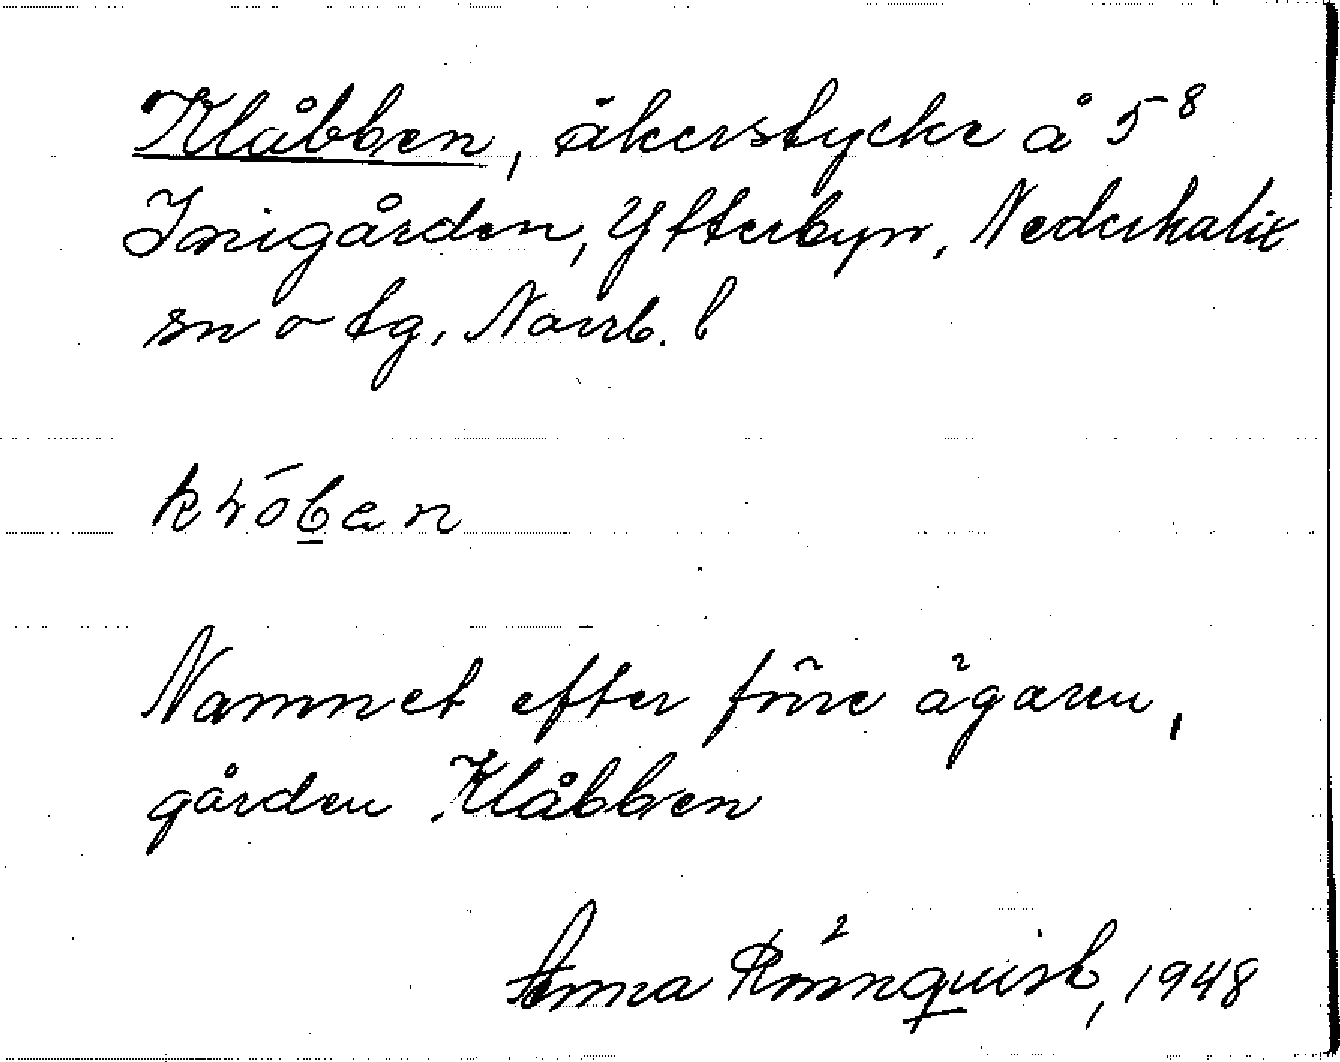 Klåbben, åkerstycke å 5⁸
Inigården, Ytterbyn, Nederkalix
sn o tg, Norrb. l
Namnet efter förre ägaren,
gården Klåbben
Anna Rönnquist, 1948